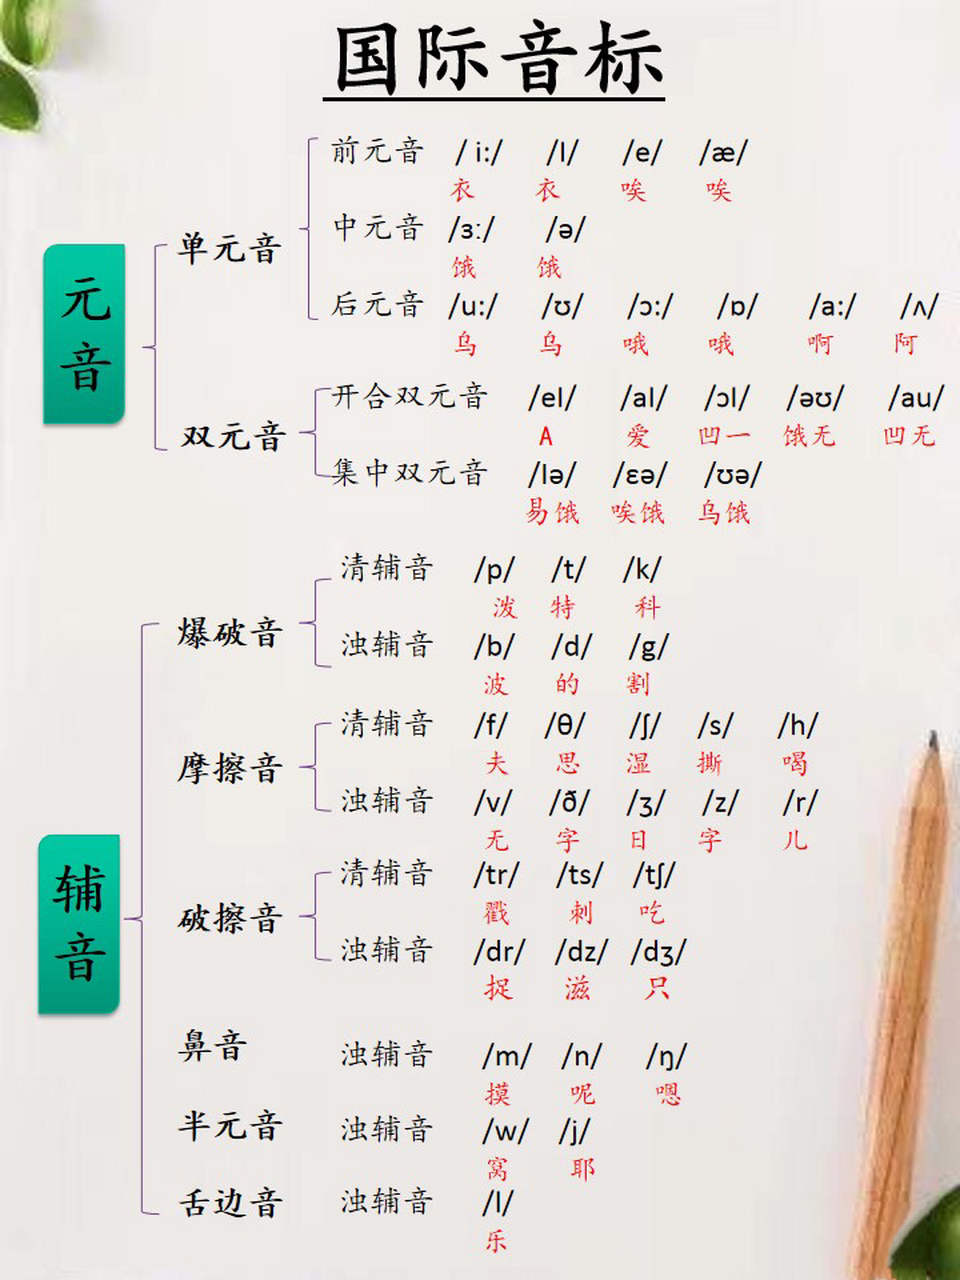 国际音标
元音
单元音
前元音 / i:/ /I/ /e/ /æ/
衣 衣 唉 唉
中元音 /ɜː/ /ə/
饿 饿
后元音 /u:/ /ʊ/ /ɔ:/ /ɒ/ /a:/ /ʌ/
乌 乌 哦 哦 啊 阿
双元音
开合双元音 /eI/ /aI/ /ɔI/ /əʊ/ /au/
A 爱 凹一 饿无 凹无
集中双元音 /Iə/ /ɛə/ /ʊə/
易饿 唉饿 乌饿
辅音
爆破音
清辅音 /p/ /t/ /k/
泼 特 科
浊辅音 /b/ /d/ /g/
波 的 割
摩擦音
清辅音 /f/ /θ/ /ʃ/ /s/ /h/
夫 思 湿 撕 喝
浊辅音 /v/ /ð/ /ʒ/ /z/ /r/
无 字 日 字 儿
破擦音
清辅音 /tr/ /ts/ /tʃ/
戳 刺 吃
浊辅音 /dr/ /dz/ /dʒ/
捉 滋 只
鼻音 浊辅音 /m/ /n/ /ŋ/
摸 呢 嗯
半元音 浊辅音 /w/ /j/
窝 耶
舌边音 浊辅音 /l/
乐